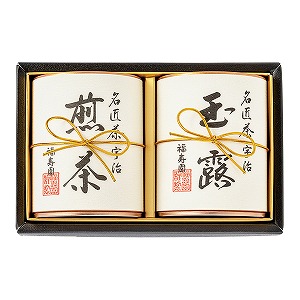 名匠茶宇治
玉露
福寿園
名匠茶宇治
煎茶
福寿園